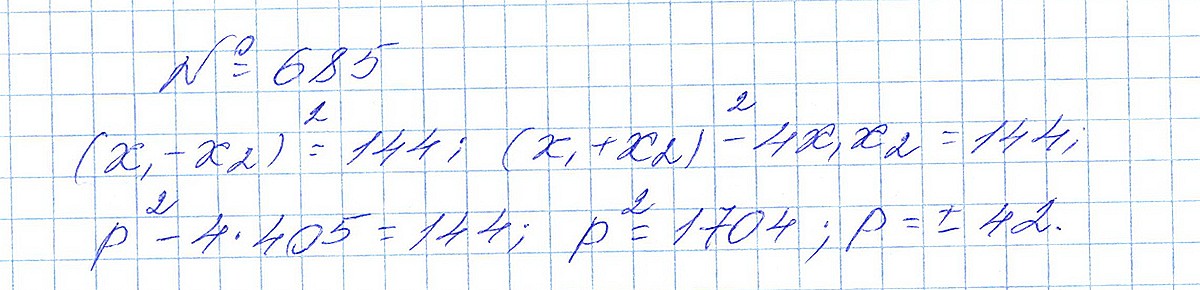 № 685
(x₁ - x₂)² = 144; (x₁ + x₂)² - 4x₁x₂ = 144;
p² - 4·405 = 144; p² = 1704; p = ± 42.